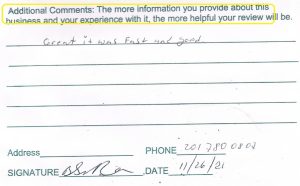 Additional Comments: The more information you provide about this
business and your experience with it, the more helpful your review will be.
Great it was Fast and good
Address PHONE 201 780 0802
SIGNATURE DATE 11/26/21